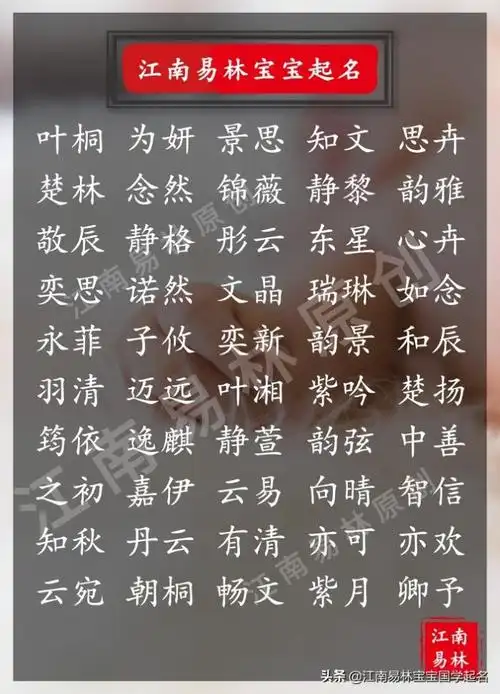 江南易林宝宝起名
叶桐 为妍 景思 知文 思卉
楚林 念然 锦薇 静黎 韵雅
敬辰 静格 彤云 东星 心卉
奕思 诺然 文晶 瑞琳 如念
永菲 子攸 奕新 韵景 和辰
羽清 迈远 叶湘 紫吟 楚扬
筠依 逸麒 静萱 韵弦 中善
之初 嘉伊 云易 向晴 智信
知秋 丹云 有清 亦可 亦欢
云宛 朝桐 畅文 紫月 卿予
江南易林原创
江南易林原创
江南易林原创
江南
易林
头条 @江南易林宝宝国学起名